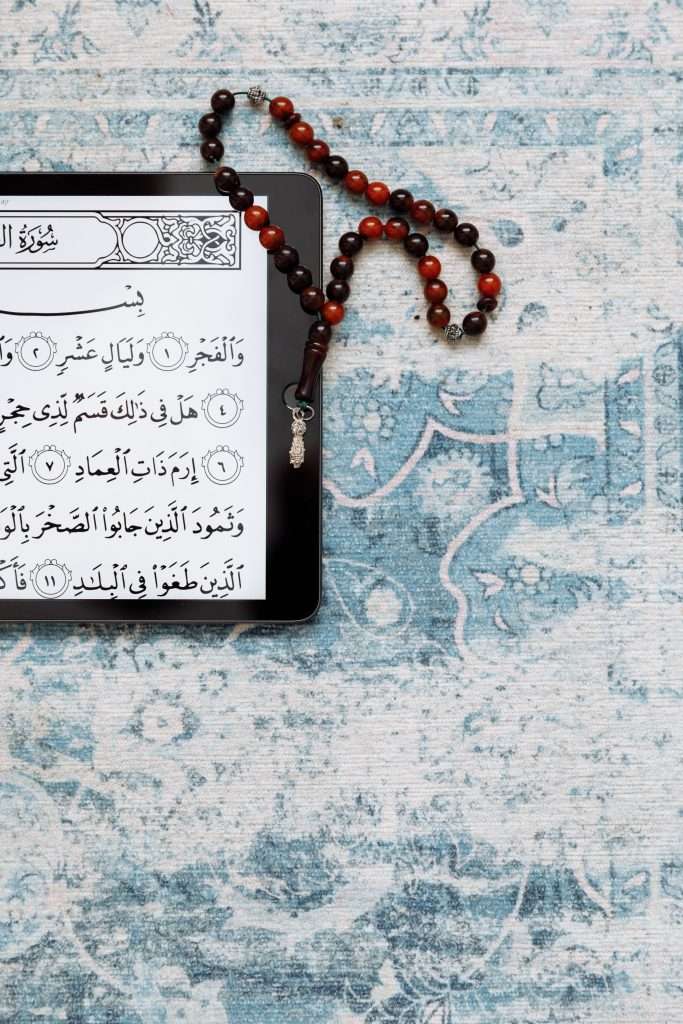 سُورَةُ
بِسْ
وَٱلْفَجْرِ ١ وَلَيَالٍ عَشْرٍ ٢
٤ هَلْ فِى ذَٰلِكَ قَسَمٌ لِّذِى حِجْرٍ
٦ إِرَمَ ذَاتِ ٱلْعِمَادِ ٧ ٱلَّتِى
وَثَمُودَ ٱلَّذِينَ جَابُوا۟ ٱلصَّخْرَ
ٱلَّذِينَ طَغَوْا۟ فِى ٱلْبِلَـٰدِ ١١